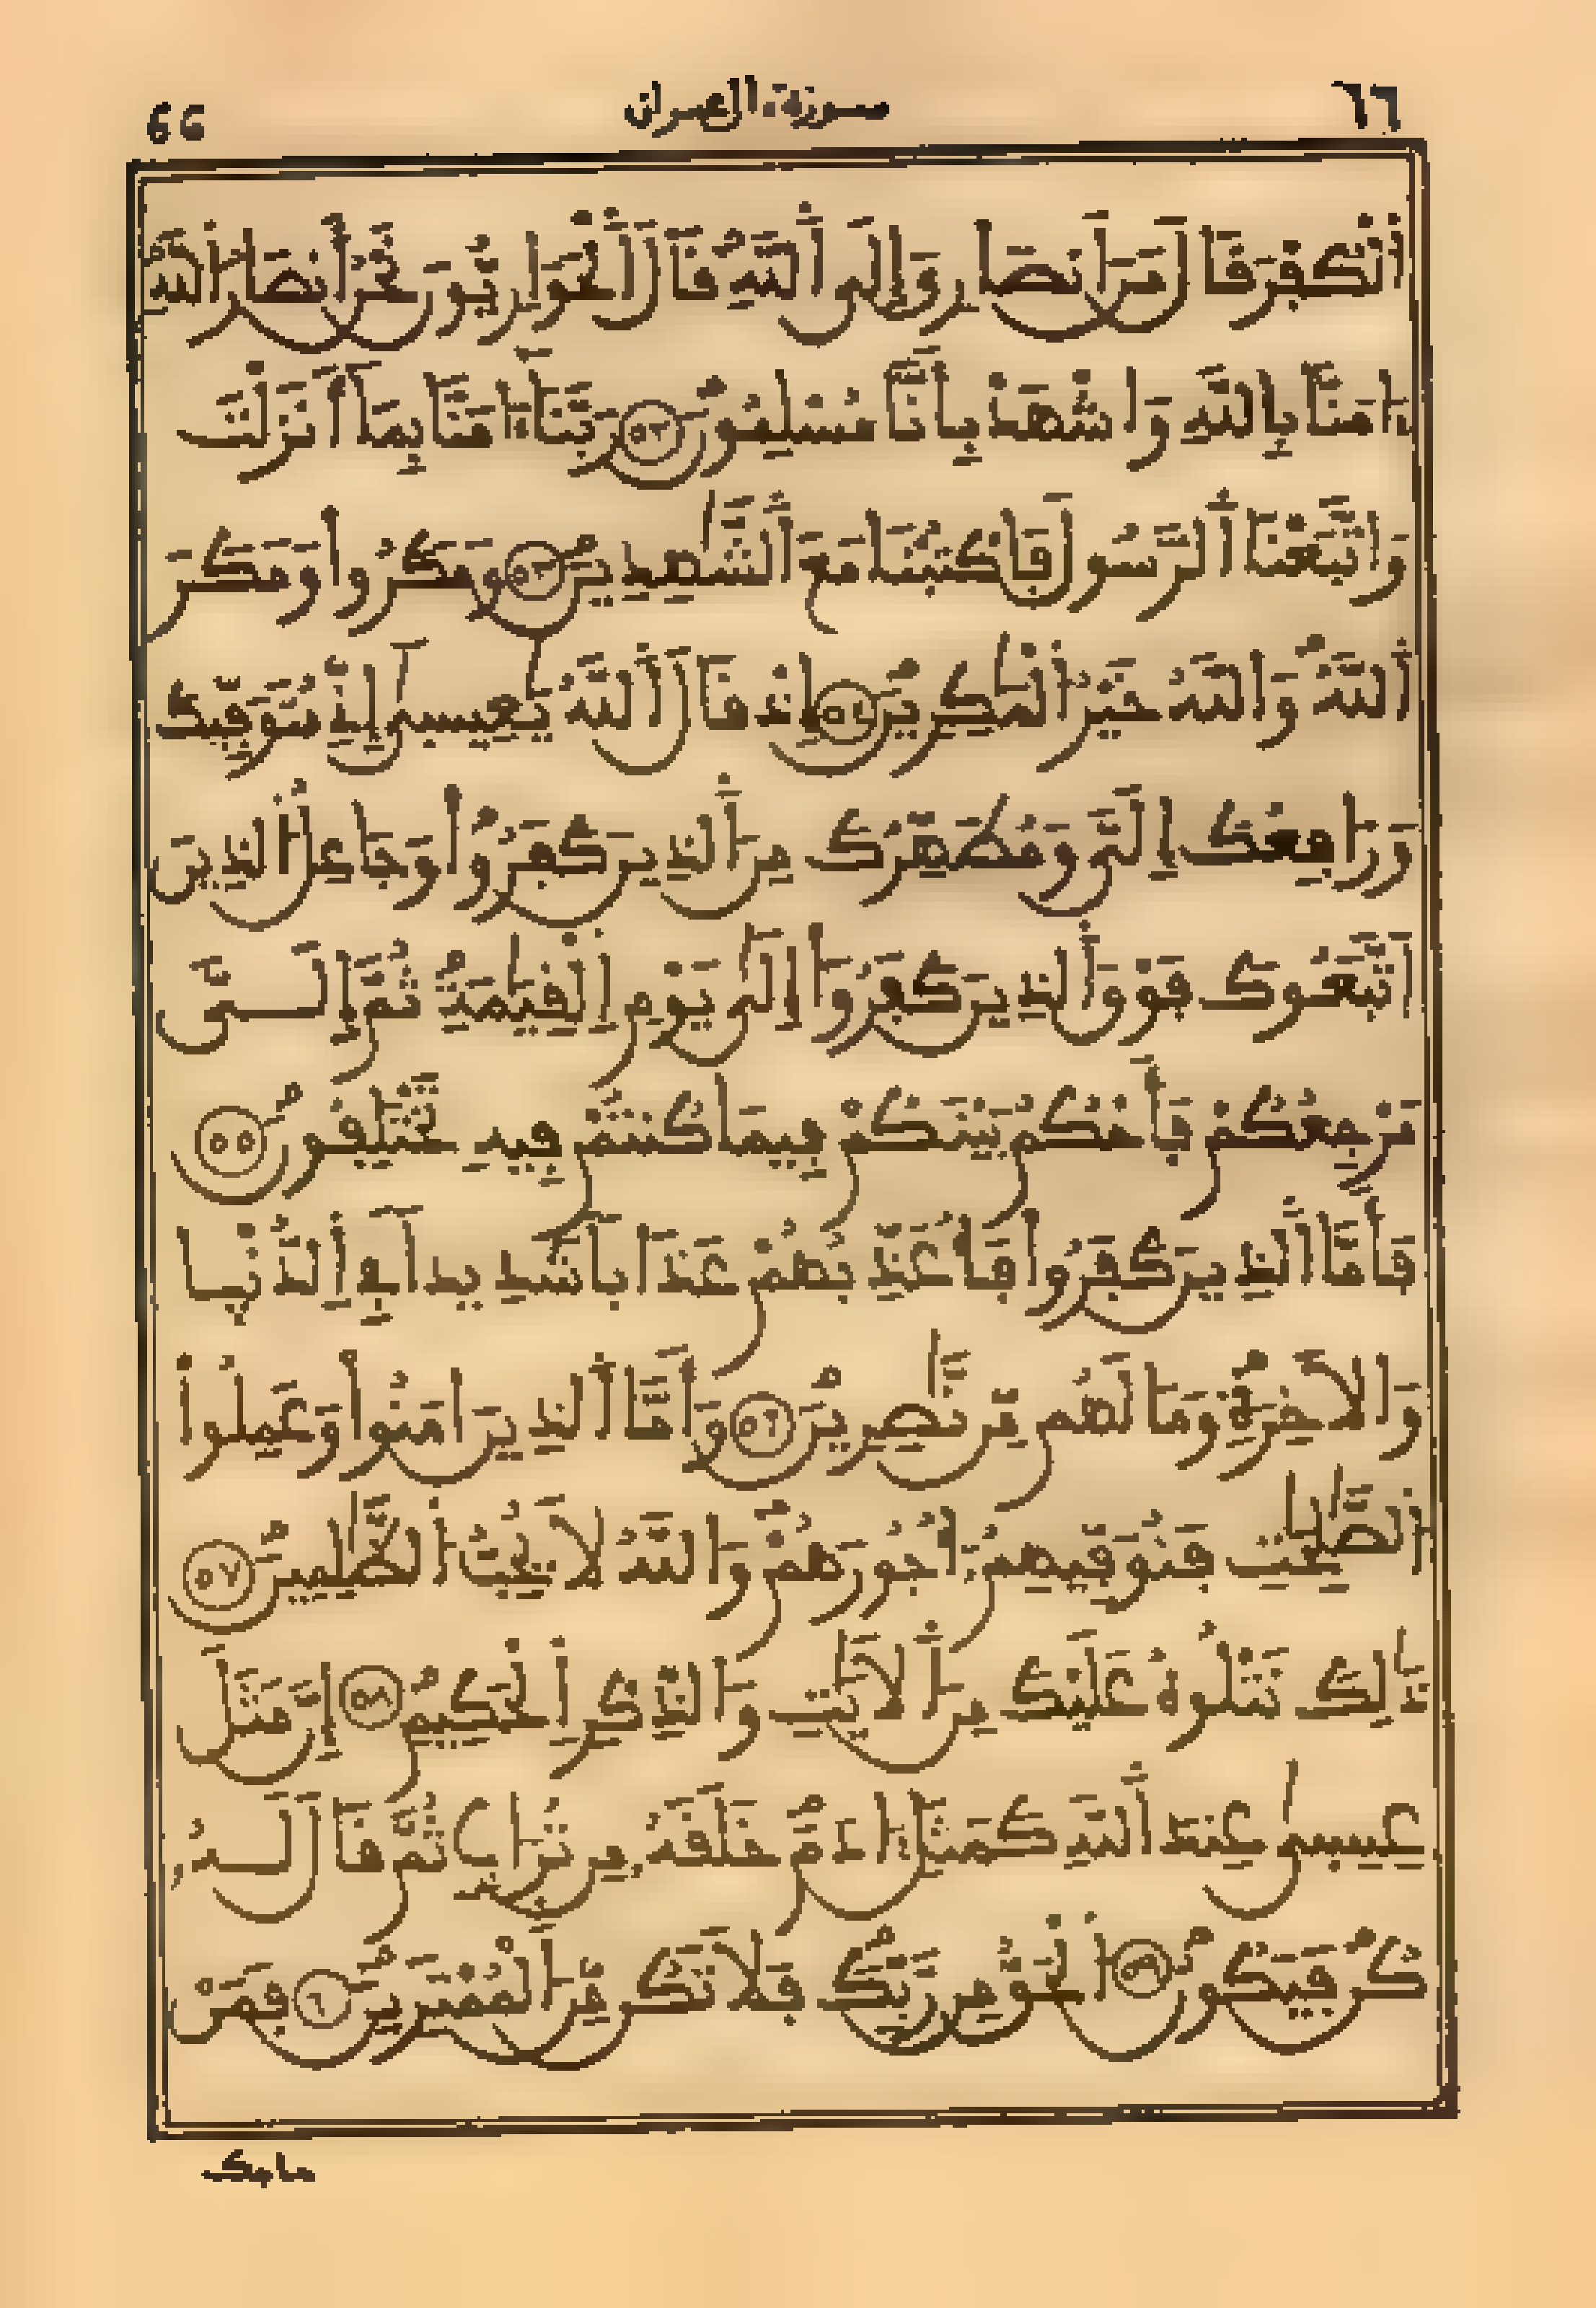 ٦٦ سورة ال عمران 66
اَ۬لْكُفْرَ قَالَ مَنَ اَنصَارِيَ إِلَى اَ۬للَّهِ قَالَ اَ۬لْحَوَارِيُّونَ نَحْنُ أَنصَارُ اُ۬للَّهِ
ءَامَنَّا بِاللَّهِ وَاشْهَدْ بِأَنَّا مُسْلِمُونَ ٥٢ رَبَّنَا ءَامَنَّا بِمَا أَنزَلْتَ
وَاتَّبَعْنَا اَ۬لرَّسُولَ فَاكْتُبْنَا مَعَ اَ۬لشَّٰهِدِينَ ٥٣ وَمَكَرُواْ وَمَكَرَ
اَ۬للَّهُ وَاللَّهُ خَيْرُ اُ۬لْمَٰكِرِينَ ٥٤ إِذْ قَالَ اَ۬للَّهُ يَٰعِيسَىٰ إِنِّي مُتَوَفِّيكَ
وَرَافِعُكَ إِلَيَّ وَمُطَهِّرُكَ مِنَ اَ۬لذِينَ كَفَرُواْ وَجَاعِلُ اُ۬لذِينَ
اَ۪تَّبَعُوكَ فَوْقَ اَ۬لذِينَ كَفَرُواْ إِلَىٰ يَوْمِ اِ۬لْقِيَٰمَةِ ثُمَّ إِلَيَّ
مَرْجِعُكُمْ فَأَحْكُمُ بَيْنَكُمْ فِيمَا كُنتُمْ فِيهِ تَخْتَلِفُونَ ٥٥
فَأَمَّا اَ۬لذِينَ كَفَرُواْ فَأُعَذِّبُهُمْ عَذَابًا شَدِيدًا فِي اِ۬لدُّنْيَا
وَالَاخِرَةِ وَمَا لَهُم مِّن نَّٰصِرِينَ ٥٦ وَأَمَّا اَ۬لذِينَ ءَامَنُواْ وَعَمِلُواْ
اُ۬لصَّٰلِحَٰتِ فَنُوَفِّيهِمُۥ أُجُورَهُمْ وَاللَّهُ لَا يُحِبُّ اُ۬لظَّٰلِمِينَ ٥٧
ذَٰلِكَ نَتْلُوهُ عَلَيْكَ مِنَ اَ۬لَايَٰتِ وَالذِّكْرِ اِ۬لْحَكِيمِ ٥٨ إِنَّ مَثَلَ
عِيسَىٰ عِندَ اَ۬للَّهِ كَمَثَلِ ءَادَمَ خَلَقَهُۥ مِن تُرَابٍ ثُمَّ قَالَ لَهُۥ
كُن فَيَكُونُ ٥٩ اُ۬لْحَقُّ مِن رَّبِّكَ فَلَا تَكُن مِّنَ اَ۬لْمُمْتَرِينَ ٦٠ فَمَنْ
حاجك